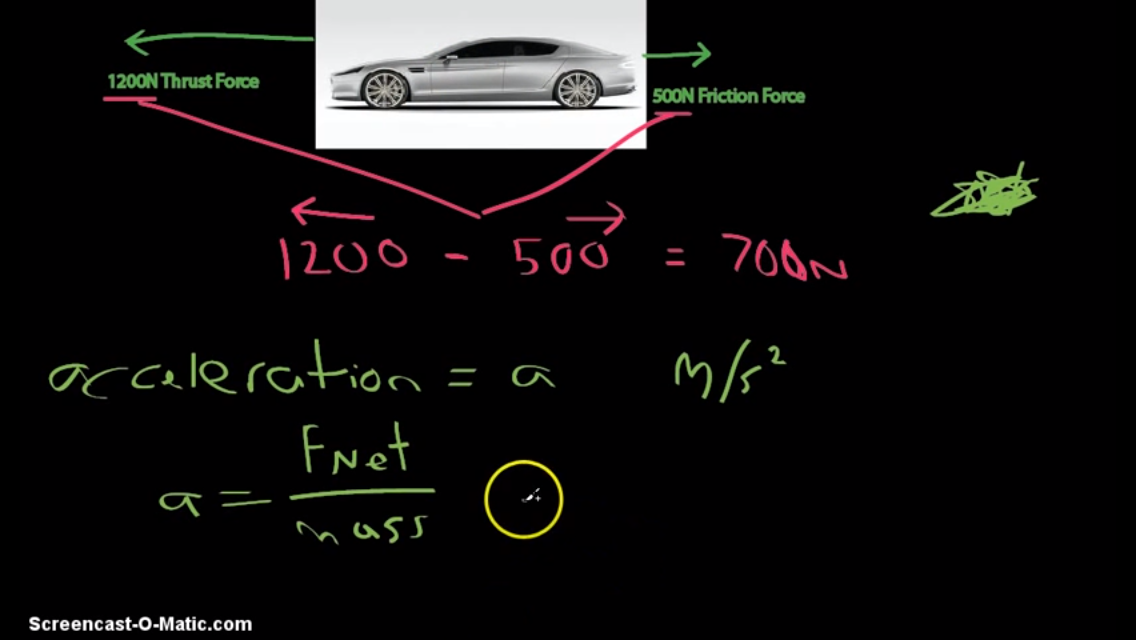 1200N Thrust Force
500N Friction Force
1200 - 500 = 700N
acceleration = a m/s²
a = FNet / mass
Screencast-O-Matic.com